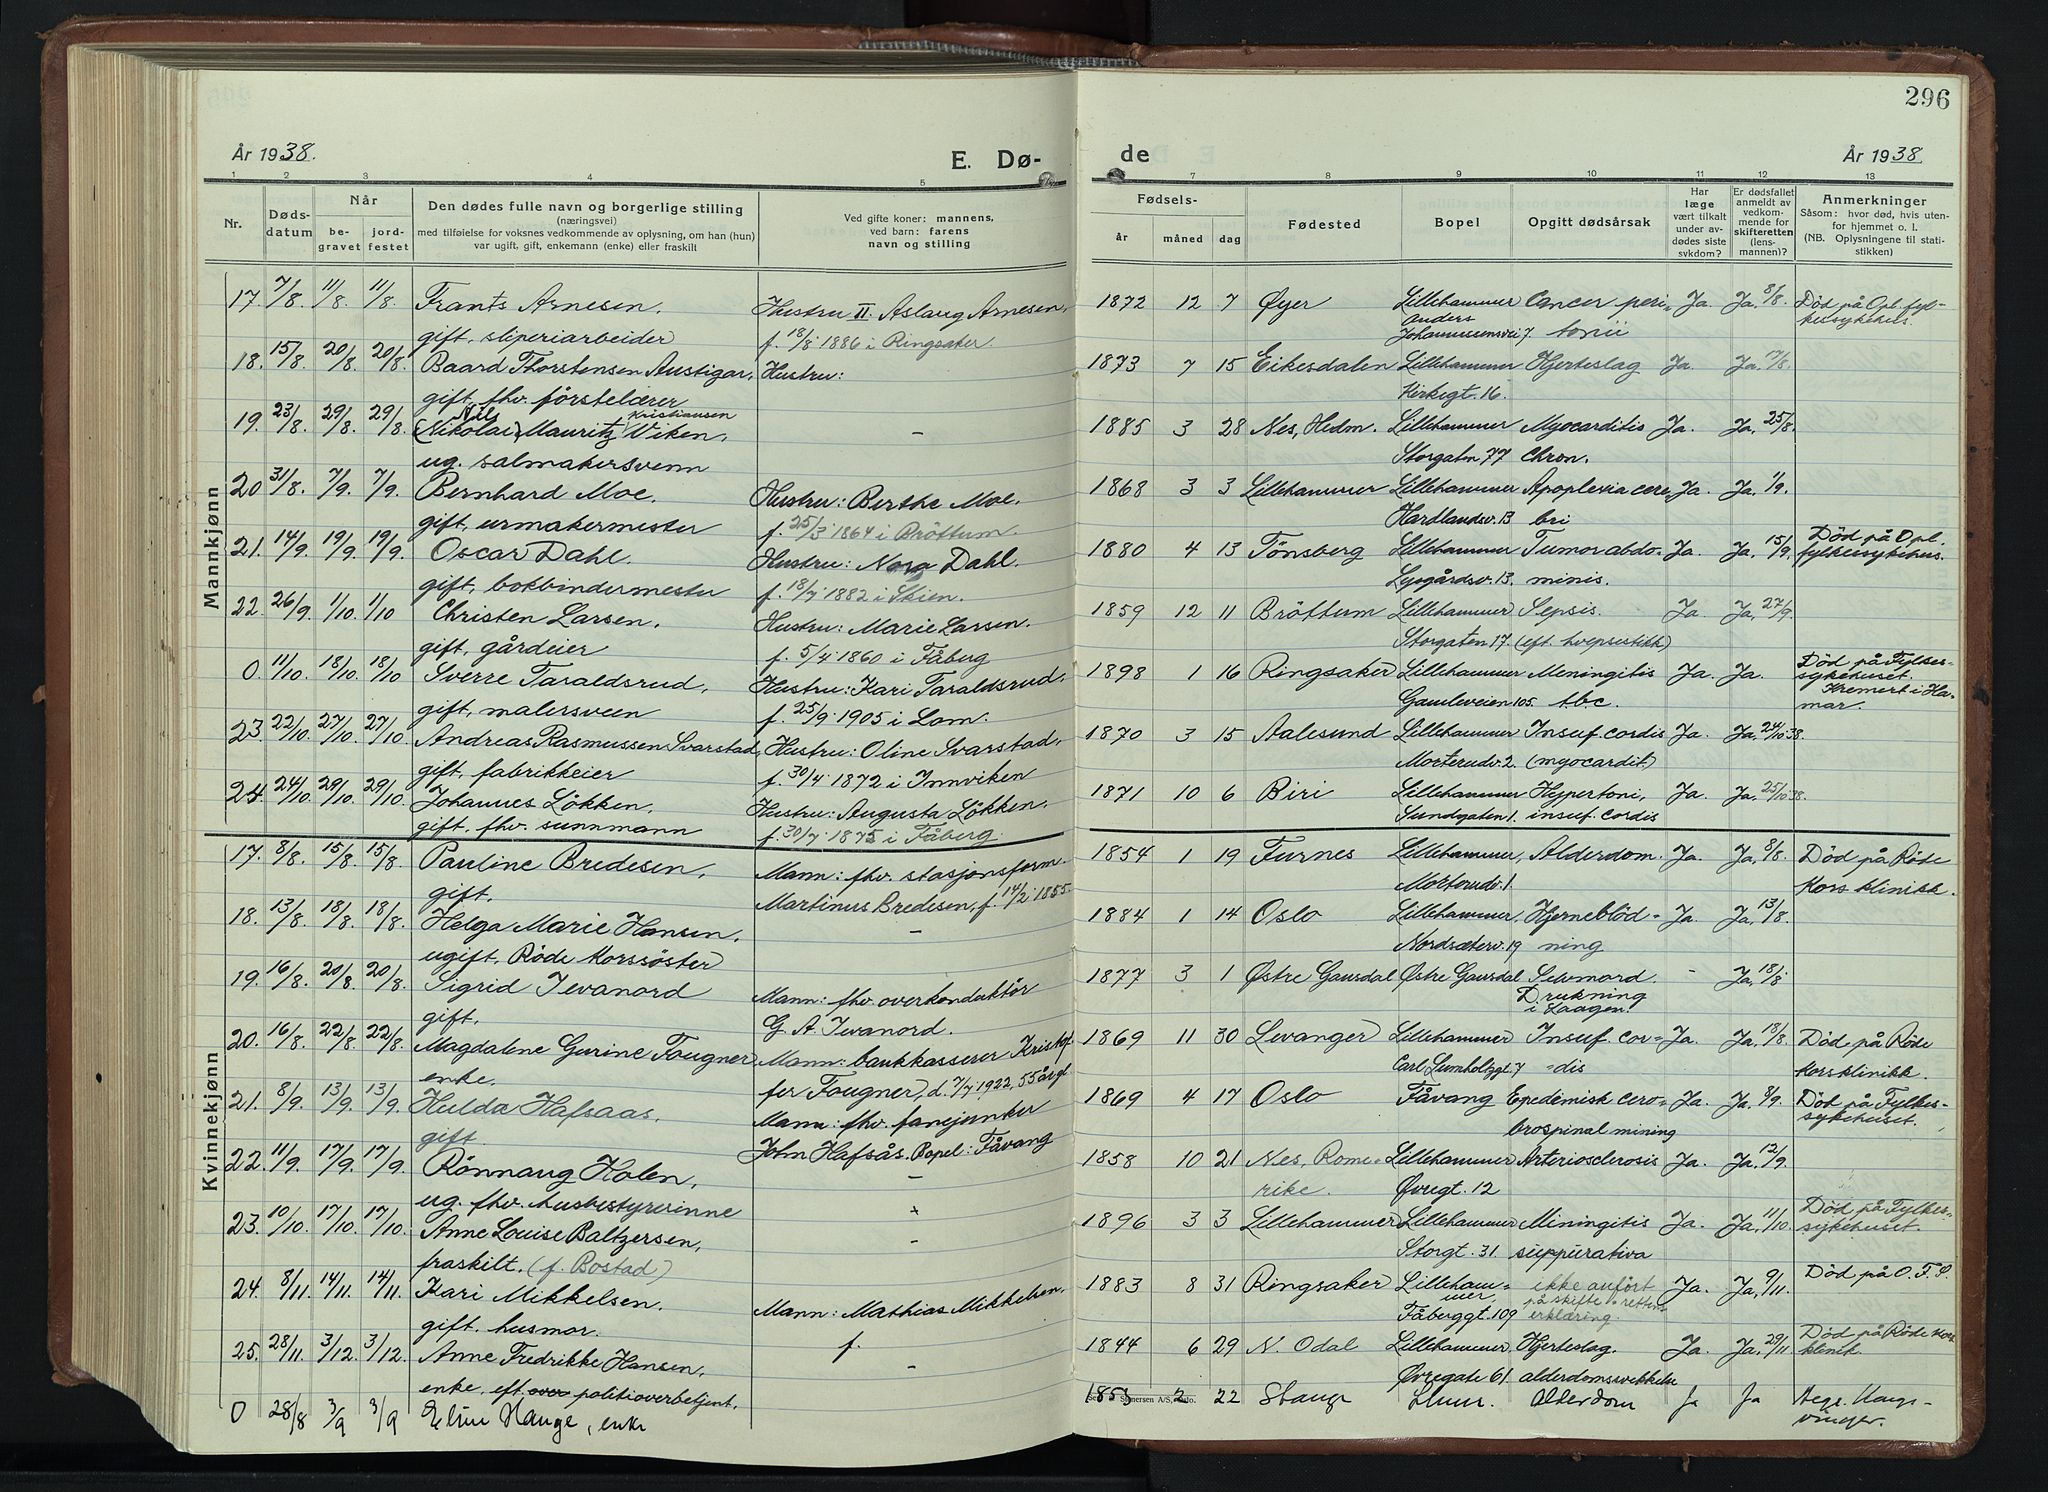 296
År 1938.
E. Dø-
de
År 1938.
1 2 3 4 5 7 8 9 10 11 12 13
Nr.
Døds-
datum
Når
be-
gravet
jord-
festet
Den dødes fulle navn og borgerlige stilling
(næringsvei)
med tilføielse for voksnes vedkommende av oplysning, om han (hun)
var ugift, gift, enkemann (enke) eller fraskilt
Ved gifte koner: mannens,
ved barn: farens
navn og stilling
Fødsels-
år måned dag
Fødested
Bopel
Opgitt dødsårsak
Har
læge
vært tilkalt
under av-
dødes siste
sykdom?
Er dødsfallet
anmeldt av
vedkom-
mende for
skifteretten
(lens-
mannen)?
Anmerkninger
Såsom: hvor død, hvis uten-
for hjemmet o. l.
(NB. Oplysningene til stati-
stikken)
Mannkjønn
17. 7/8. 11/8. 11/8. Frants Arnesen. Hustru II. Aslaug Arnesen, 1872 12 7 Øyer Lillehammer Cancer peri- Ja. Ja. 8/8. Död på Opl. fyl-
gift, sliperiarbeider f. 18/8 1886 i Ringsaker. Anders Johannessensvei 7. tonii kessykehus.
18. 15/8. 20/8. 20/8. Baard Thorstensen Austigar, Hustru: 1873 7 15 Eikesdalen Lillehammer Hjerteslag Ja. Ja. 17/8.
gift, fhv. förstelærer Kirkegt. 16.
19. 23/8. 29/8. 29/8. (Nikolai) Nils Mauritz Kristiansen Viken, - 1885 3 28 Nes, Hedm. Lillehammer Myocarditis Ja. Ja, 25/8.
ug. salmakersvenn Storgaten 77 chron.
20 31/8. 7/9. 7/9. Bernhard Moe. Hustru: Berthe Moe. 1868 3 3 Lillehammer Lillehammer Apoplexia cere Ja. Ja, 1/9.
gift, urmakermester f. 25/3 1864 i Bröttum. Hardlandsv. 13 bri
21. 14/9. 19/9. 19/9. Oscar Dahl. Hustru: Nora Dahl. 1880 4 13 Tønsberg Lillehammer Tumor abdo- Ja. Ja, 15/9. Död på Opl.
gift, bokbindermester f. 18/7 1882 i Skien. Lysgårdsv. 13. minis. fylkessykehus.
22. 26/9. 1/10. 1/10 Christen Larsen. Hustru: Marie Larsen. 1859 12 11 Bröttum Lillehammer Sepsis. Ja Ja, 27/9.
gift, gårdeier f. 5/4 1860 i Fåberg Storgaten 17 (eft. hvepsestikk)
0 11/10. 18/10 18/10 Sverre Taraldsrud. Hustru: Kari Taraldsrud, 1898 1 16 Ringsaker Lillehammer Meningitis Ja. Ja. Död på Fylkes-
gift, malersvenn f. 25/9 1905 i Lom. Gamleveien 105. tbc. sykehuset. Kremert i Ha-
mar.
23 22/10. 27/10. 27/10. Andreas Rasmussen Svarstad, Hustru: Oline Svarstad, 1870 3 15 Aalesund Lillehammer Insuf. cordis Ja. Ja, 24/10 38.
gift, fabrikkeier f. 30/4 1872 i Innviken Morterudv. 2. (myocardit.)
24. 24/10. 29/10. 29/10. Johannes Lökken. Hustru: Augusta Lökken. 1871 10 6 Biri Lillehammer Hypertoni, Ja. Ja, 25/10 38.
gift. fhv. sunnmann f. 30/7 1875 i Fåberg. Sundgaten 1. insuf. cordis
Kvinnekjønn
17. 8/8. 15/8. 15/8 Pauline Bredesen, Mann: fhv. stasjonsform. 1854 1 19 Furnes Lillehammer, Alderdom. Ja. Ja, 8/8. Död på Röde
gift. Martinus Bredesen, f. 14/2 1855. Morterudv. 1. Kors klinikk.
18. 13/8. 18/8. 18/8. Helga Marie Hansen. - 1884 1 14 Oslo Lillehammer. Hjerneblöd- Ja. Ja, 13/8.
ugift, Röde Korssöster Nordsæterv. 19 ning
19. 16/8. 20/8. 20/8. Sigrid Ievanord Mann: fhv. overkonduktör 1877 3 1 Østre Gausdal Østre Gausdal Selvmord. - Ja, 18/8.
gift. G. A. Ievanord. Drukning i Laagen.
20. 16/8. 22/8. 22/8. Magdalene Gurine Fougner Mann: bankkasserer Kristof- 1869 11 30 Levanger Lillehammer Insuf. cor- Ja. Ja. 18/8. Död på Röde
enke. fer Fougner, d. 7/7 1922, 55 år gl. Carl Lumholtzgt. 7 -dis Kors klinikk.
21. 8/9. 13/9. 13/9. Hulda Hafsaas. Mann: fhv. fanejunker 1869 4 17 Oslo Fåvang Epedemisk cere- Ja. Ja. 8/9. Död på Fylkes-
gift John Hafsås. Bopel: Fåvang brospinal mining sykehuset.
22. 11/9. 17/9. 17/9. Rönnaug Holen, - 1858 10 21 Nes, Rome- Lillehammer Arteriosclerosis Ja. Ja, 12/9.
ug. fhv. husbestyrerinne rike. Øvregt. 12
23. 10/10. 17/10. 17/10. Anne Louise Baltzersen, - 1896 3 3 Lillehammer Lillehammer Miningitis Ja. Ja, 11/10. Död på Fylkes-
fraskilt. (f. Bostad) Storgt. 31. suppurativa sykehuset.
24. 8/11. 14/11. 14/11. Kari Mikkelsen. Mann: Mathias Mikkelsen, 1883 8 31 Ringsaker Lilleham- ikke anfört Ja. Ja, 9/11. Död på O. F. S.
gift. husmor. f. mer, Fåberggt. 109 på skifterettens erklæring.
25. 28/11. 3/12. 3/12. Anne Fredrikke Hansen, - 1844 6 29 N. Odal Lillehammer Hjerteslag. Ja Ja, 29/11 Död på Röde Kors
enke. eft. politioverbetjent. Øvregate 61. alderdomssvekkelse klinik.
0 28/8 3/9 3/9 Elin Hauge, enke 2 22 Stange Lhmr. Alderdom Ja Ja